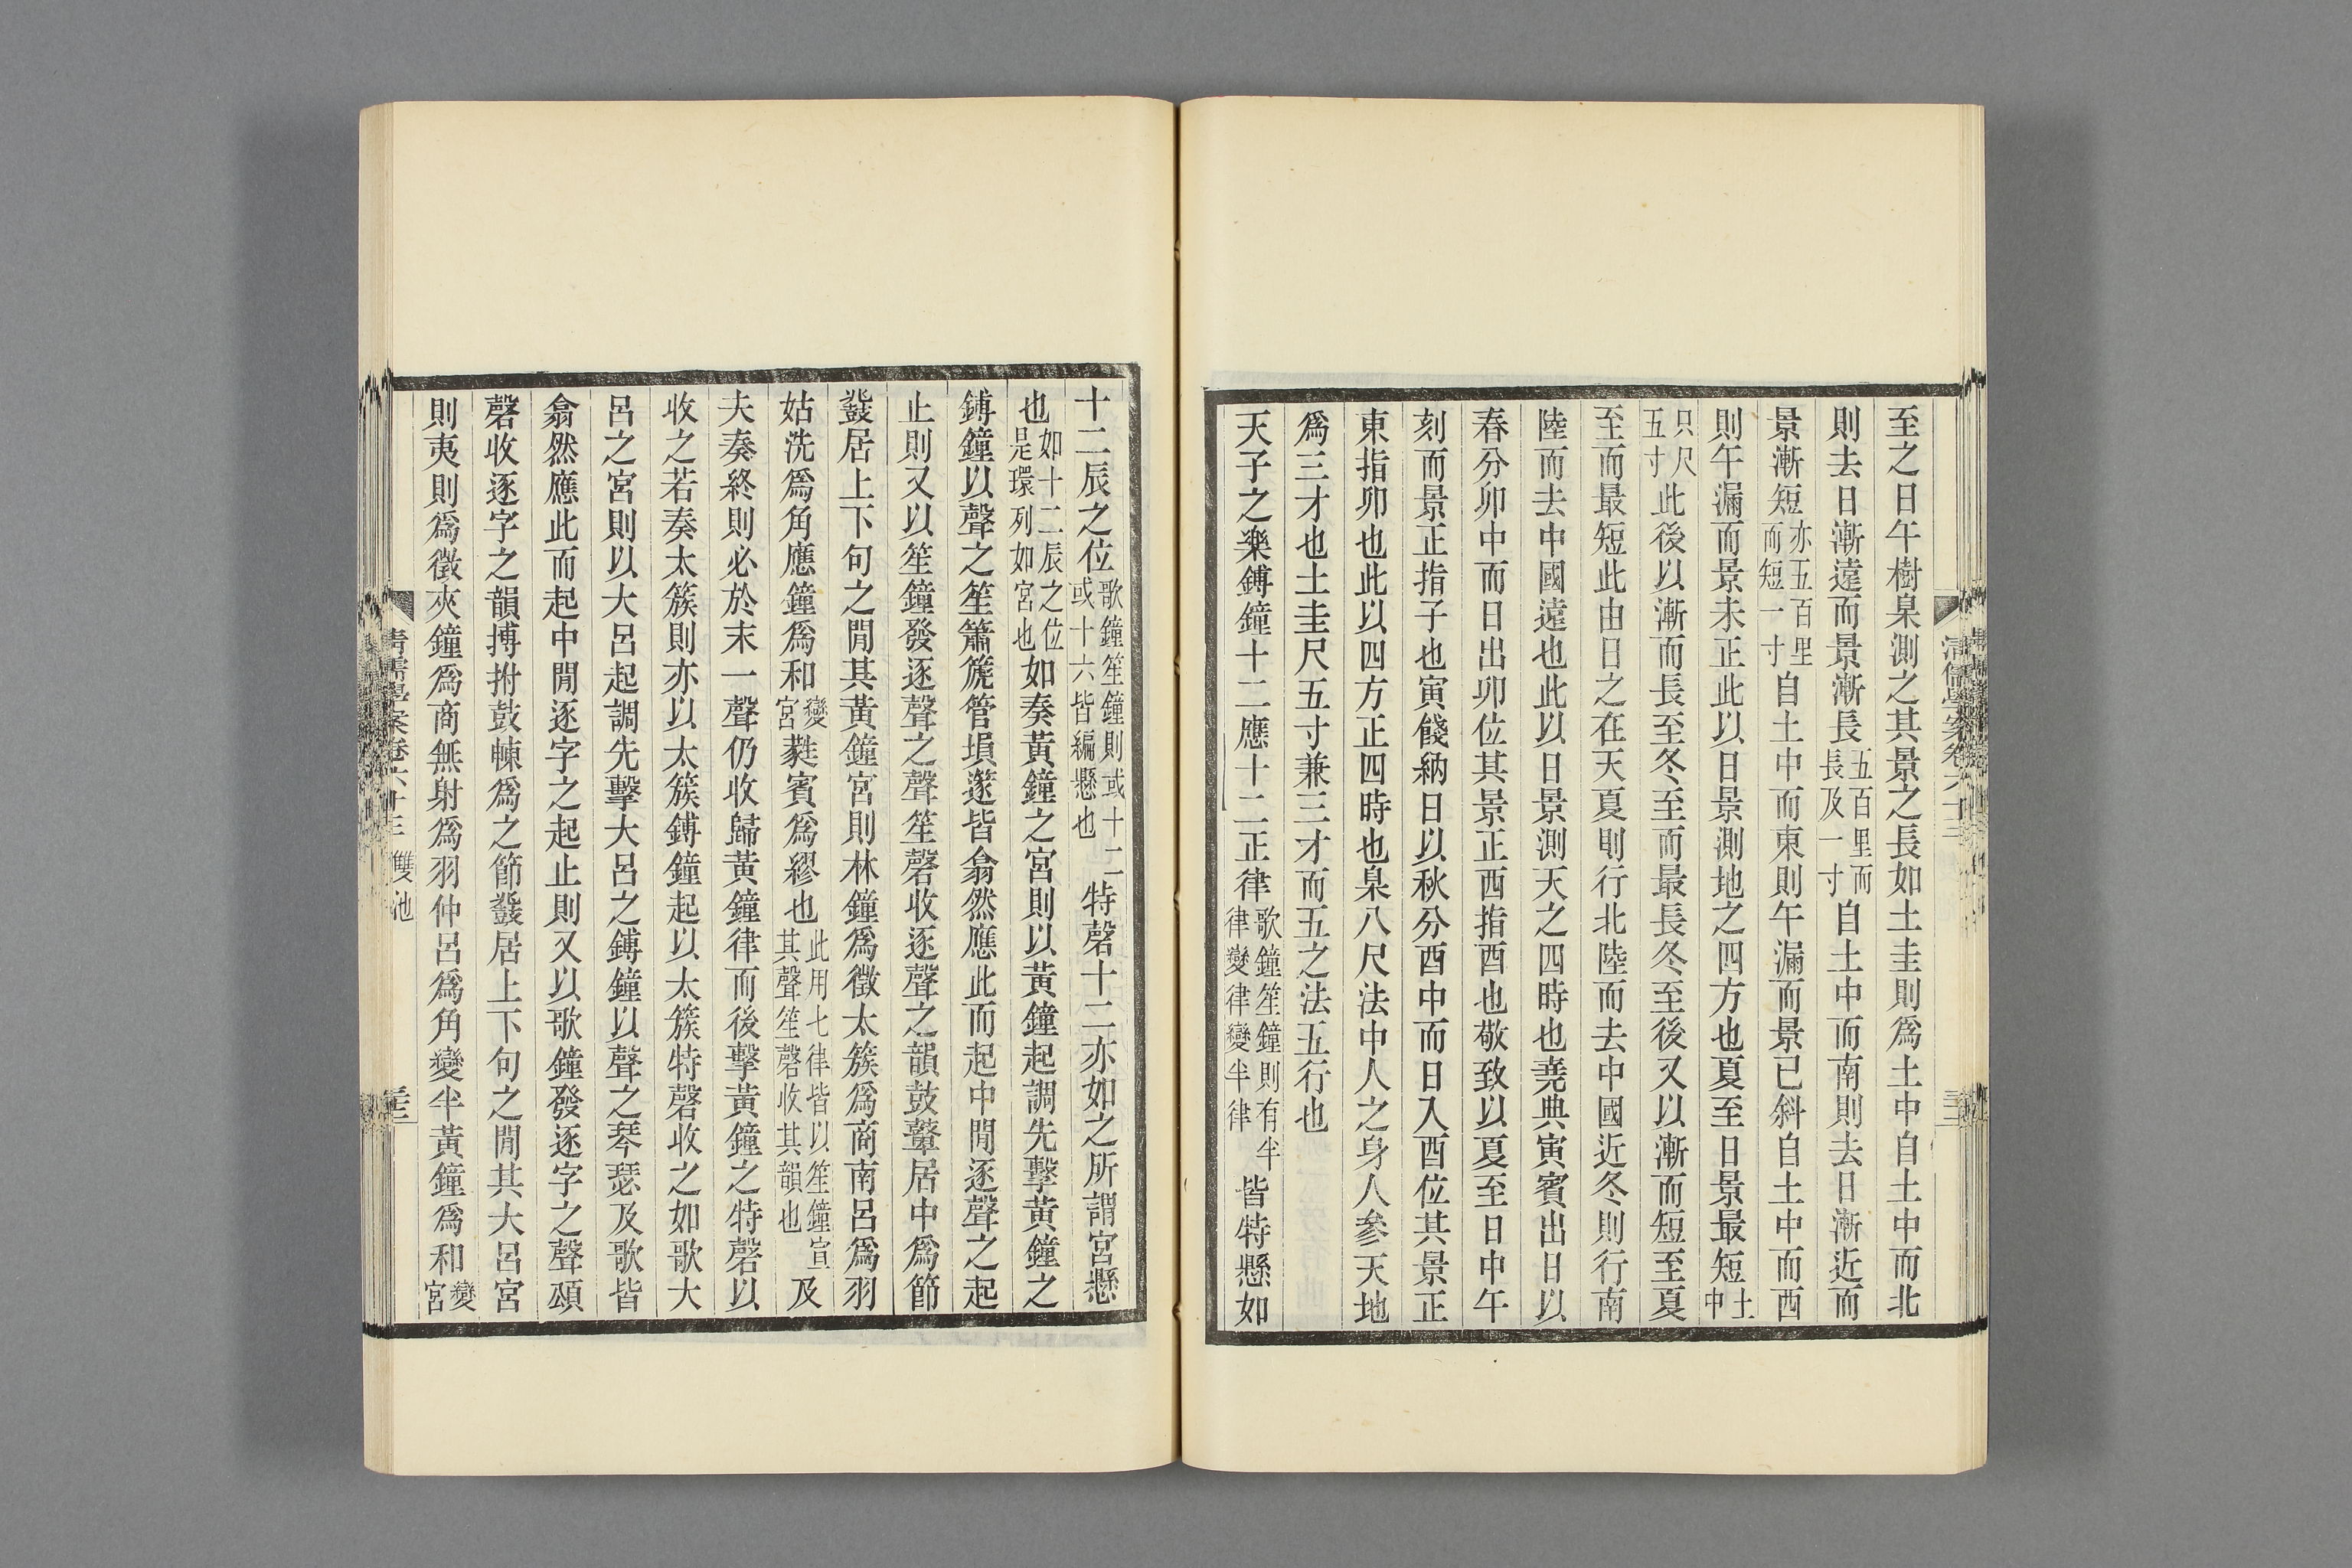 至之日午樹臬測之其景之長如土圭則爲土中自土中而北
則去日漸遠而景漸長五百里而長及一寸自土中而南則去日漸近而
景漸短亦五百里而短一寸自土中而東則午漏而景已斜自土中而西
則午漏而景未正此以日景測地之四方也夏至日景最短土中
只尺五寸此後以漸而長至冬至而最長冬至後又以漸而短至夏
至而最短此由日之在天夏則行北陸而去中國近冬則行南
陸而去中國遠也此以日景測天之四時也堯典寅賓出日以
春分卯中而日出卯位其景正西指酉也敬致以夏至日中午
刻而景正指子也寅餞納日以秋分酉中而日入酉位其景正
東指卯也此以四方正四時也臬八尺法中人之身人參天地
爲三才也土圭尺五寸兼三才而五之法五行也
天子之樂鎛鐘十二應十二正律歌鐘笙鐘則有半律變律變半律皆特懸如
清儒學案卷六十三
十二辰之位歌鐘笙鐘則或十二或十六皆編懸也特磬十二亦如之所謂宮懸
也如十二辰之位是環列如宮也如奏黃鐘之宮則以黃鐘起調先擊黃鐘之
鎛鐘以聲之笙簫箎管塤邃皆翕然應此而起中閒逐聲之起
止則又以笙鐘發逐聲之聲笙磬收逐聲之韻鼓鼙居中爲節
鼗居上下句之閒其黃鐘宮則林鐘爲徵太簇爲商南呂爲羽
姑洗爲角應鐘爲和變宮蕤賓爲繆也此用七律皆以笙鐘宣其聲笙磬收其韻也及
夫奏終則必於末一聲仍收歸黃鐘律而後擊黃鐘之特磬以
收之若奏太簇則亦以太簇鎛鐘起以太簇特磬收之如歌大
呂之宮則以大呂起調先擊大呂之鎛鐘以聲之琴瑟及歌皆
翕然應此而起中閒逐字之起止則又以歌鐘發逐字之聲頌
磬收逐字之韻搏拊鼓㯥爲之節鼗居上下句之閒其大呂宮
則夷則爲徵夾鐘爲商無射爲羽仲呂爲角變半黃鐘爲和變宮
清儒學案卷六十三 雙池